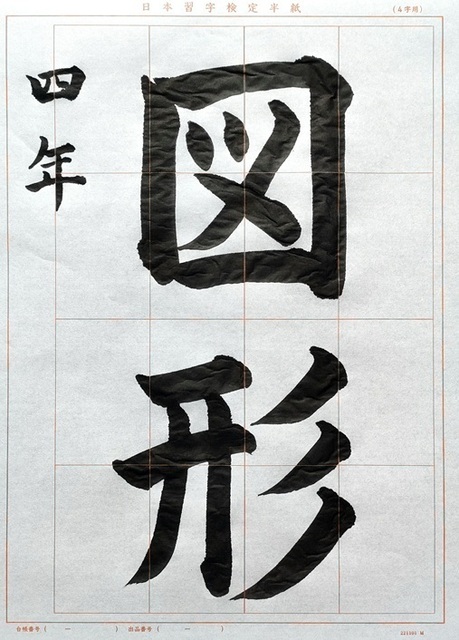 日本習字検定半紙
(4字用)
図形
四年
台帳番号 ( ー ) 出品番号 ( ー )